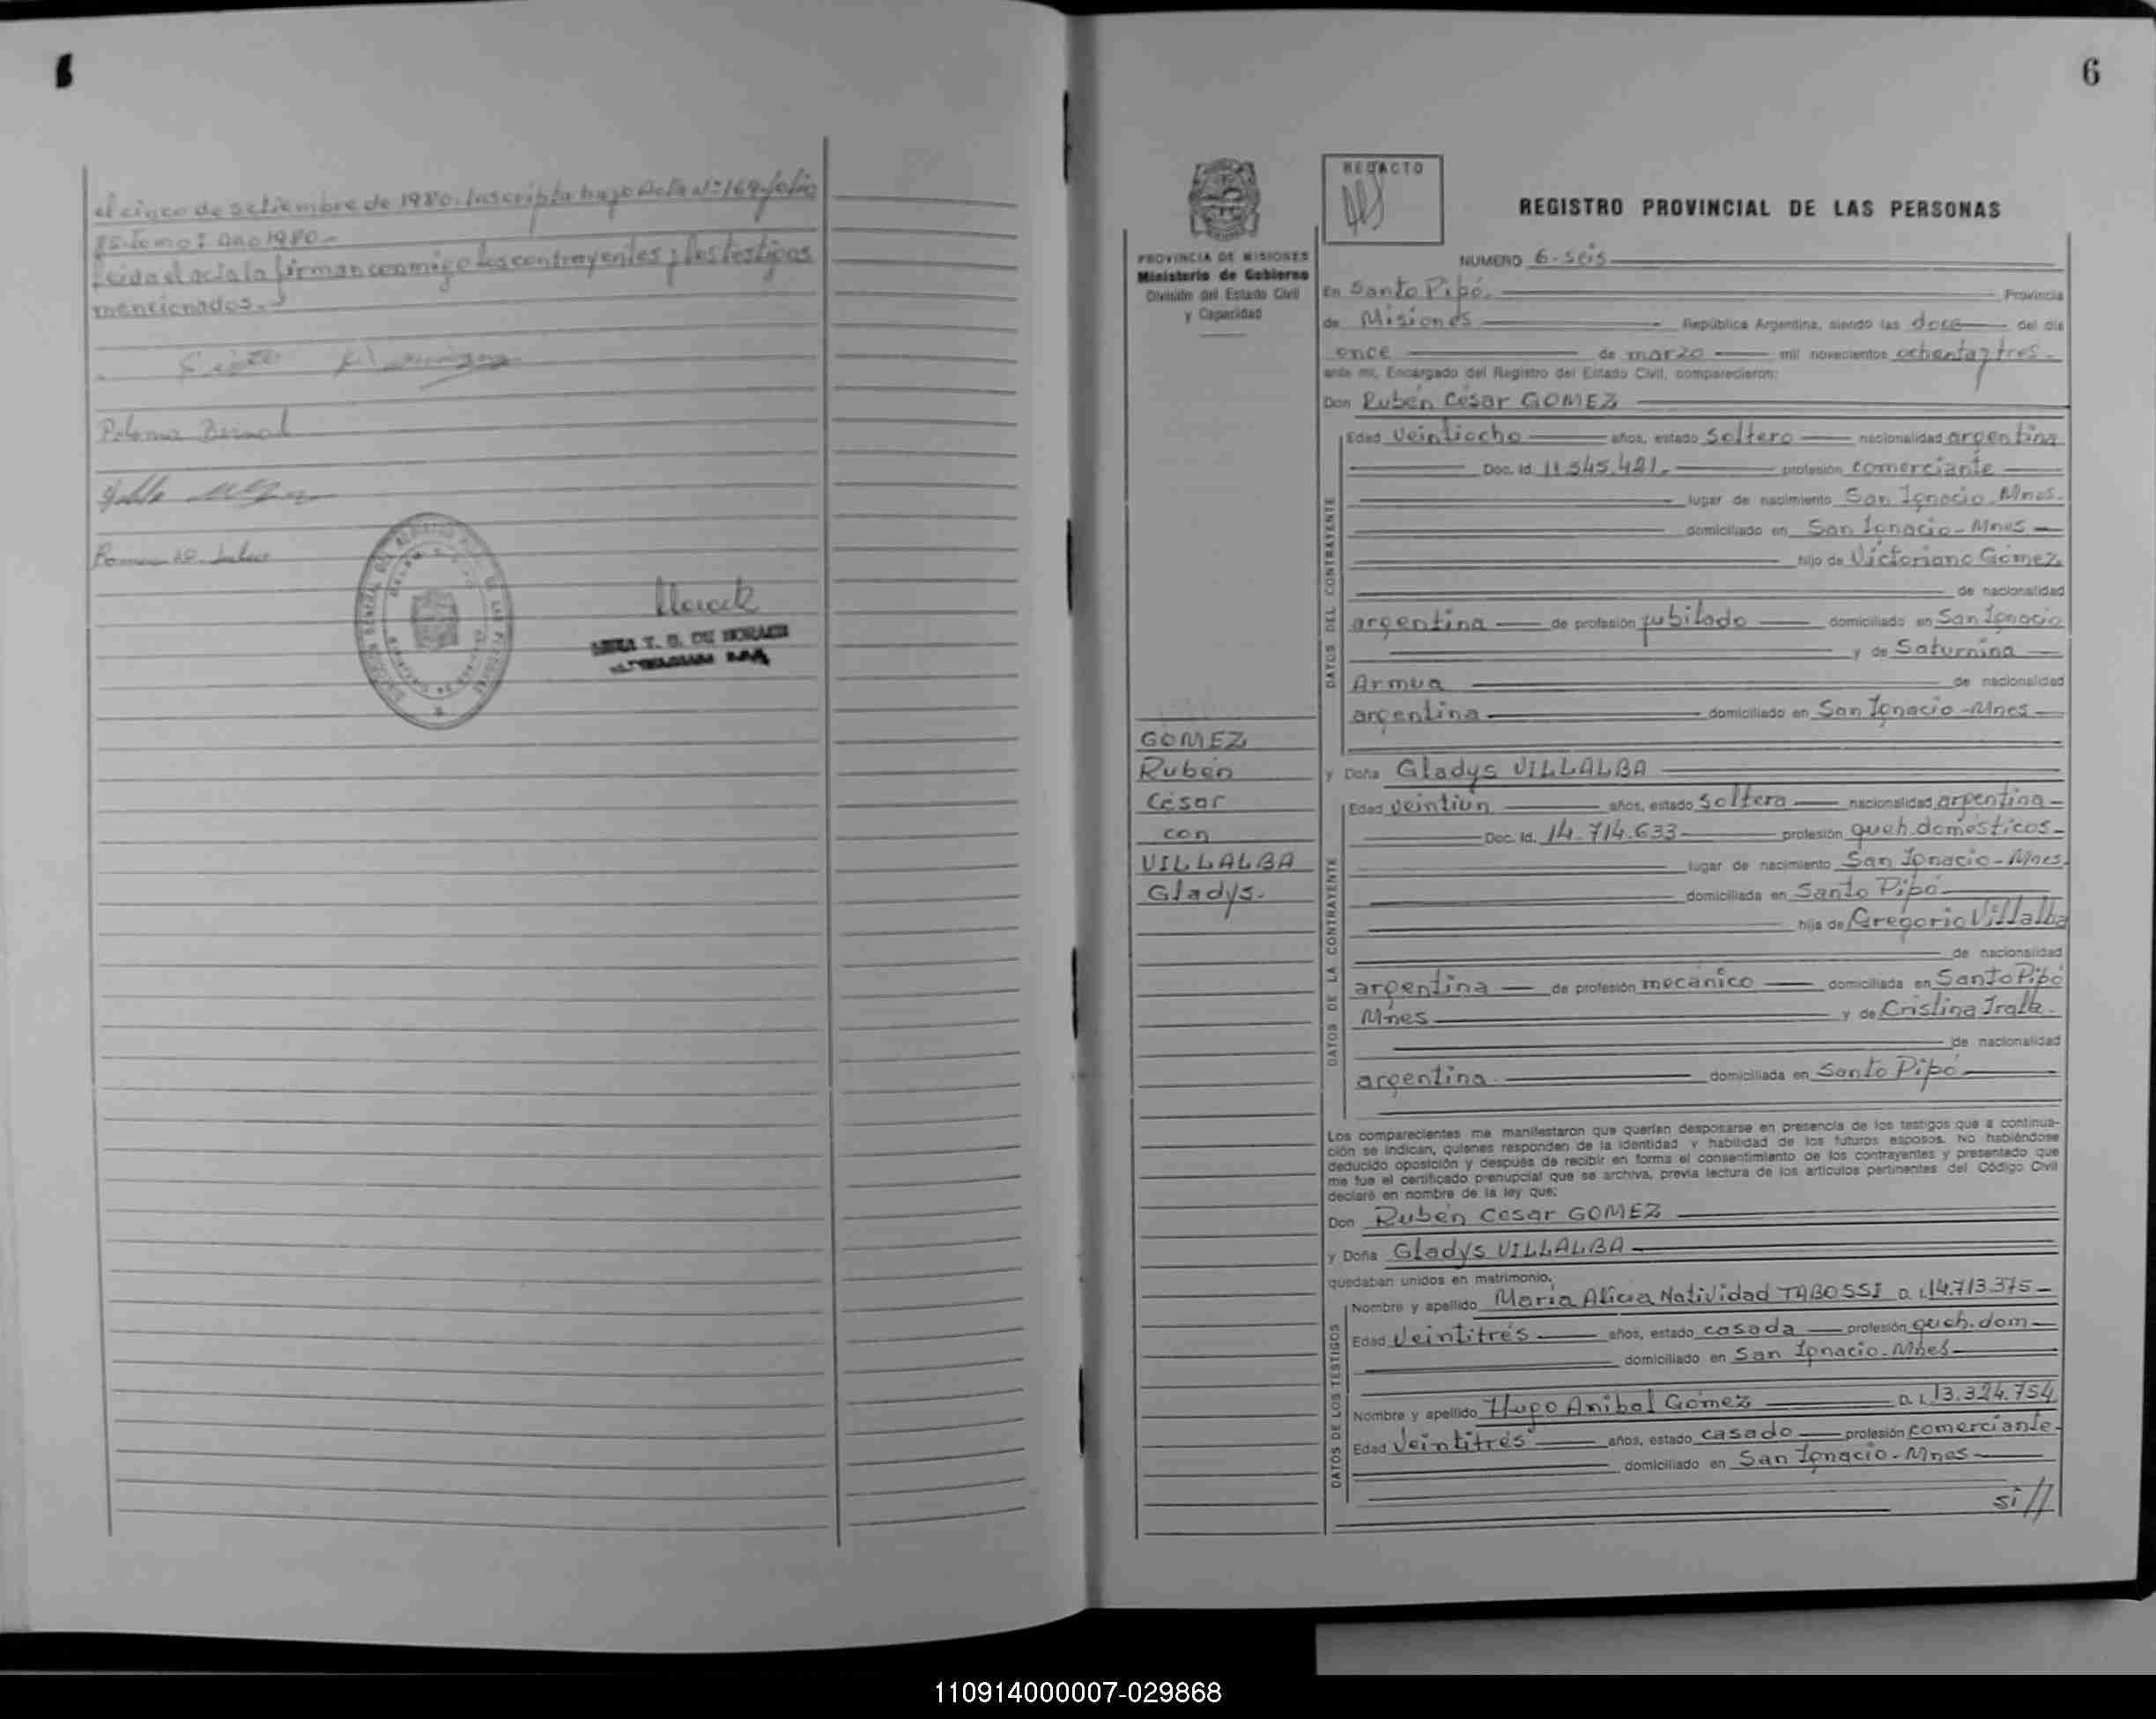 el cinco de setiembre de 1980. Inscripta bajo Acta Nº 169 folio
85. Tomo I Año 1980.-
Leida el acta la firman conmigo los contrayentes y los testigos
mencionados.-
Paloma Bernal
6
REDACTO
REGISTRO PROVINCIAL DE LAS PERSONAS
PROVINCIA DE MISIONES
Ministerio de Gobierno
División del Estado Civil
y Capacidad
NUMERO 6-seis
En Santo Pipó. Provincia
de Misiones República Argentina, siendo las doce del día
once de marzo mil novecientos ochenta y tres.
ante mi, Encargado del Registro del Estado Civil, comparecieron:
Don Rubén César GOMEZ
DATOS DEL CONTRAYENTE
Edad veintiocho años, estado soltero nacionalidad argentina
Doc. Id. 11.545.421.- profesión comerciante
lugar de nacimiento San Ignacio Mnes.
domiciliado en San Ignacio-Mnes
hijo de Victoriano Gómez
de nacionalidad
argentina de profesión jubilado domiciliado en San Ignacio
y de Saturnina
Armua de nacionalidad
argentina domiciliado en San Ignacio-Mnes
GOMEZ
Rubén
César
con
VILLALBA
Gladys.
y Doña Gladys VILLALBA
DATOS DE LA CONTRAYENTE
Edad veintiún años, estado soltera nacionalidad argentina
Doc. Id. 14.714.633 profesión queh. domésticos
lugar de nacimiento San Ignacio-Mnes.
domiciliada en Santo Pipó
hija de Gregorio Villalba
de nacionalidad
argentina de profesión mecánico domiciliada en Santo Pipó
Mnes y de Cristina Iralla.
de nacionalidad
argentina domiciliada en Santo Pipó
Los comparecientes me manifestaron que querían desposarse en presencia de los testigos que a continua-
ción se indican, quienes responden de la identidad y habilidad de los futuros esposos. No habiéndose
deducido oposición y después de recibir en forma el consentimiento de los contrayentes y presentado que
me fue el certificado prenupcial que se archiva, previa lectura de los artículos pertinentes del Código Civil
declaré en nombre de la ley que:
Don Rubén Cesar GOMEZ
y Doña Gladys VILLALBA
quedaban unidos en matrimonio.
DATOS DE LOS TESTIGOS
Nombre y apellido María Alicia Natividad TABOSSI D.I. 14.713.375
Edad veintitrés años, estado casada profesión queh. dom
domiciliado en San Ignacio. Mnes
Nombre y apellido Hugo Anibal Gómez D.I. 13.324.754
Edad veintitrés años, estado casado profesión comerciante.
domiciliado en San Ignacio. Mnes
si//
110914000007-029868